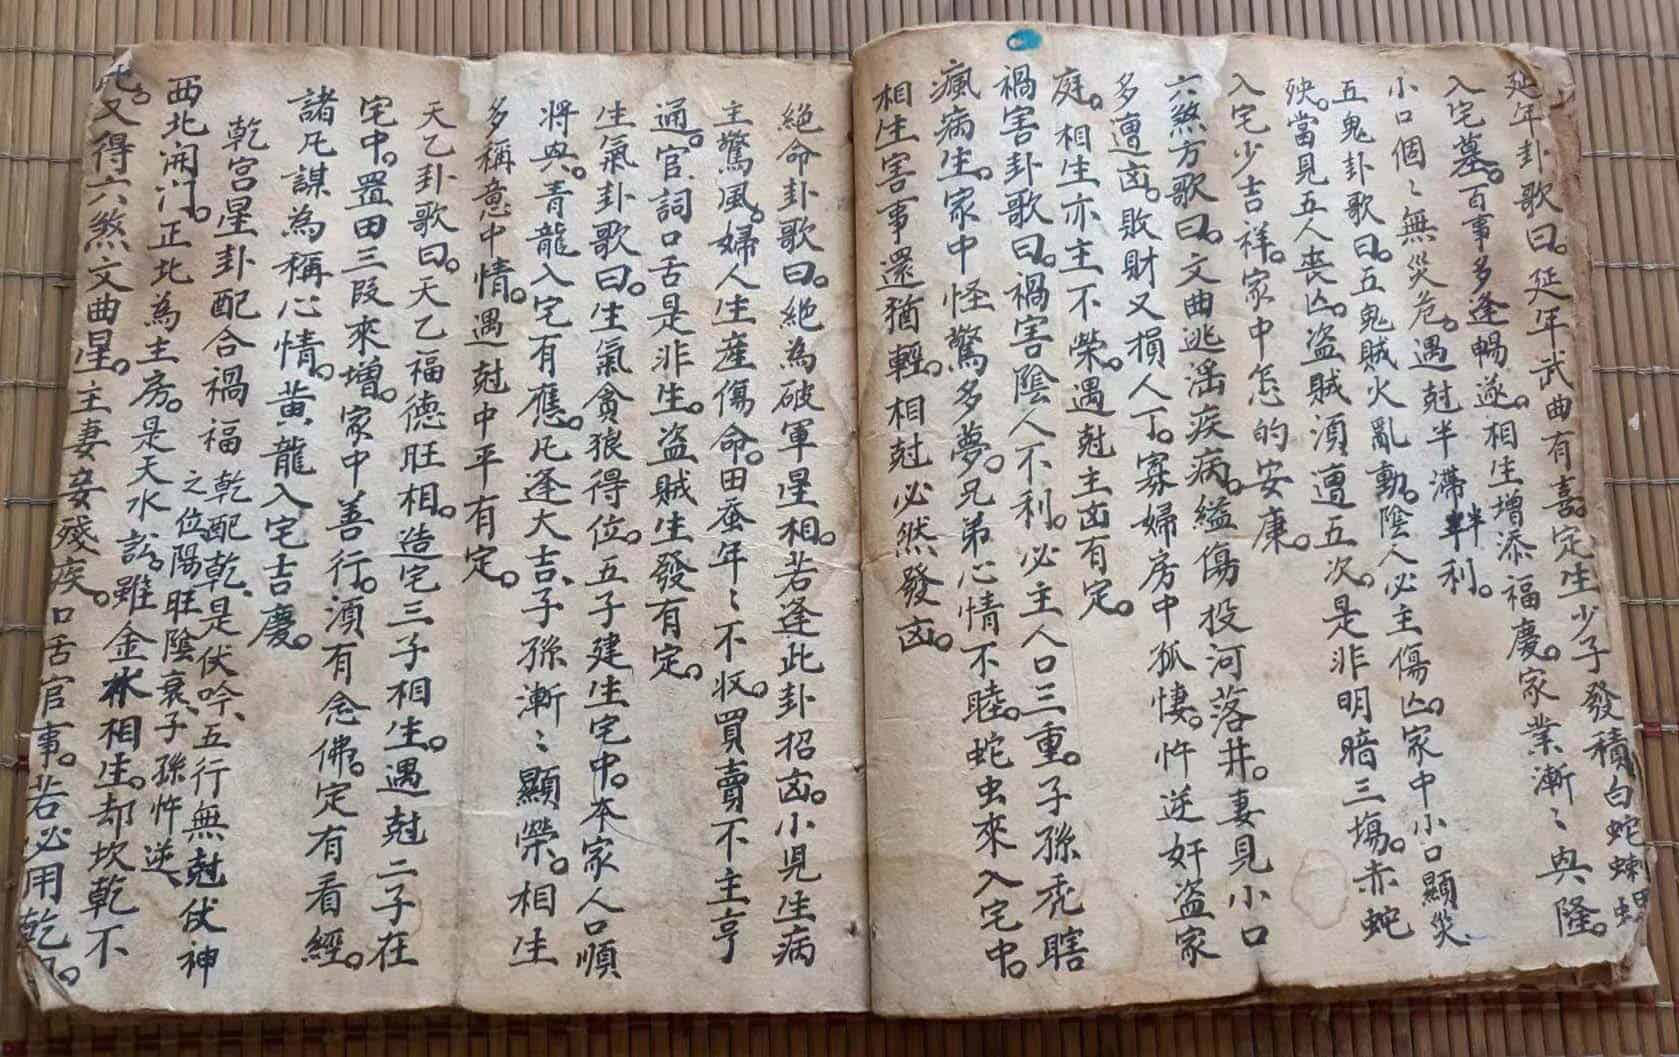 延年卦歌曰。延年武曲有喜。定生少子發積白蛇
入宅墓。百事多逢暢遂。相生增添福慶。家業漸〻興隆。
小口個〻無災危。遇尅半滯半利。
五鬼卦歌曰。五鬼賊火亂動。陰人必主傷凶。家中小口顯災
殃。當見五人喪凶。盜賊湏遭五次。是非明暗三塲。赤蛇
入宅少吉祥。家中怎的安康。
六煞方歌曰。文曲逃滛疾病。縊傷投河落井。妻見小口
多遭凶。敗財又損人丁。寡婦房中孤悽。忤逆奸盜家
庭。相生亦主不榮。遇尅主凶有定。
禍害卦歌曰。禍害陰人不利。必主人口三重。子孫禿瞎
瘋病生。家中怪驚多夢。兄弟心情不睦。蛇虫來入宅中。
相生害事還猶輕。相尅必然發凶。
絕命卦歌曰。絕為破軍星相。若逢此卦招凶。小見生病
主驚風。婦人生產傷命。田蚕年〻不収。買賣不主亨
通。官詞口舌是非生。盜賊生發有定。
生氣卦歌曰。生氣貪狼得位。五子建生宅中。本家人口順
將興。青龍入宅有應。凡逢大吉、子孫漸〻顯榮。相生
多稱意中情。遇尅中平有定。
天乙卦歌曰。天乙福德旺相。造宅三子相生。遇尅二子在
宅中。置田三段來增。家中善行。湏有念佛。定有看經。
諸凡謀為稱心情。黃龍入宅吉慶。
乾宮星卦配合禍福 乾配乾、是伏吟、五行無尅伏神
之位陽旺陰衰、子孫忤逆、
西北開门。正北為主房。是天水訟。雖金水相生。却坎乾不
化。又得六煞文曲星。主妻妾殘疾。口舌官事。若必用乾